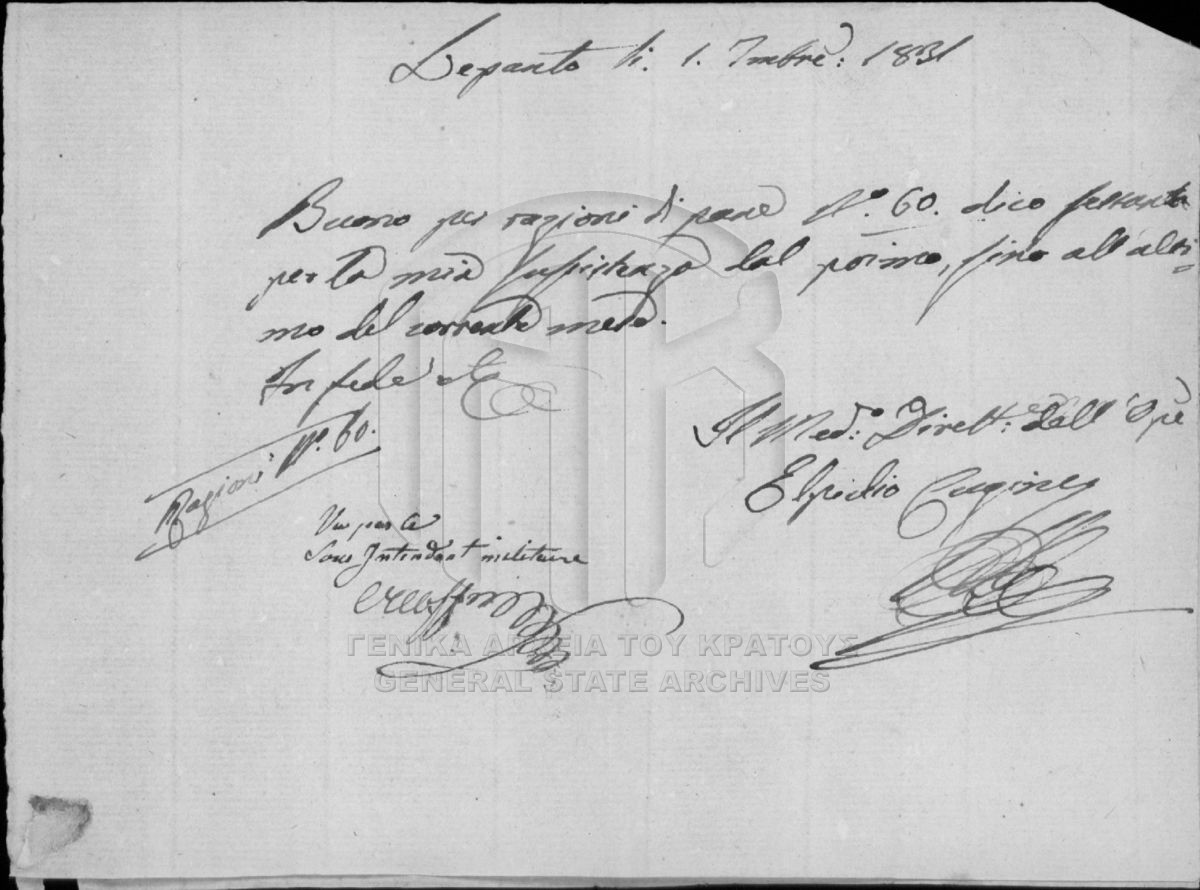 Lepanto li. 1. 7mbre: 1831
Buono per razioni di pane N.º 60. dico sessanta
per la mia susistenza dal primo, fino all'ulti-
mo del corrente mese.
In fede
Razioni N.º 60.
Il Med.º Dirett: dall' Ospe
Elpidio
Vu par le
Sous Intendant militaire
ΓΕΝΙΚΑ ΑΡΧΕΙΑ ΤΟΥ ΚΡΑΤΟΥΣ
GENERAL STATE ARCHIVES